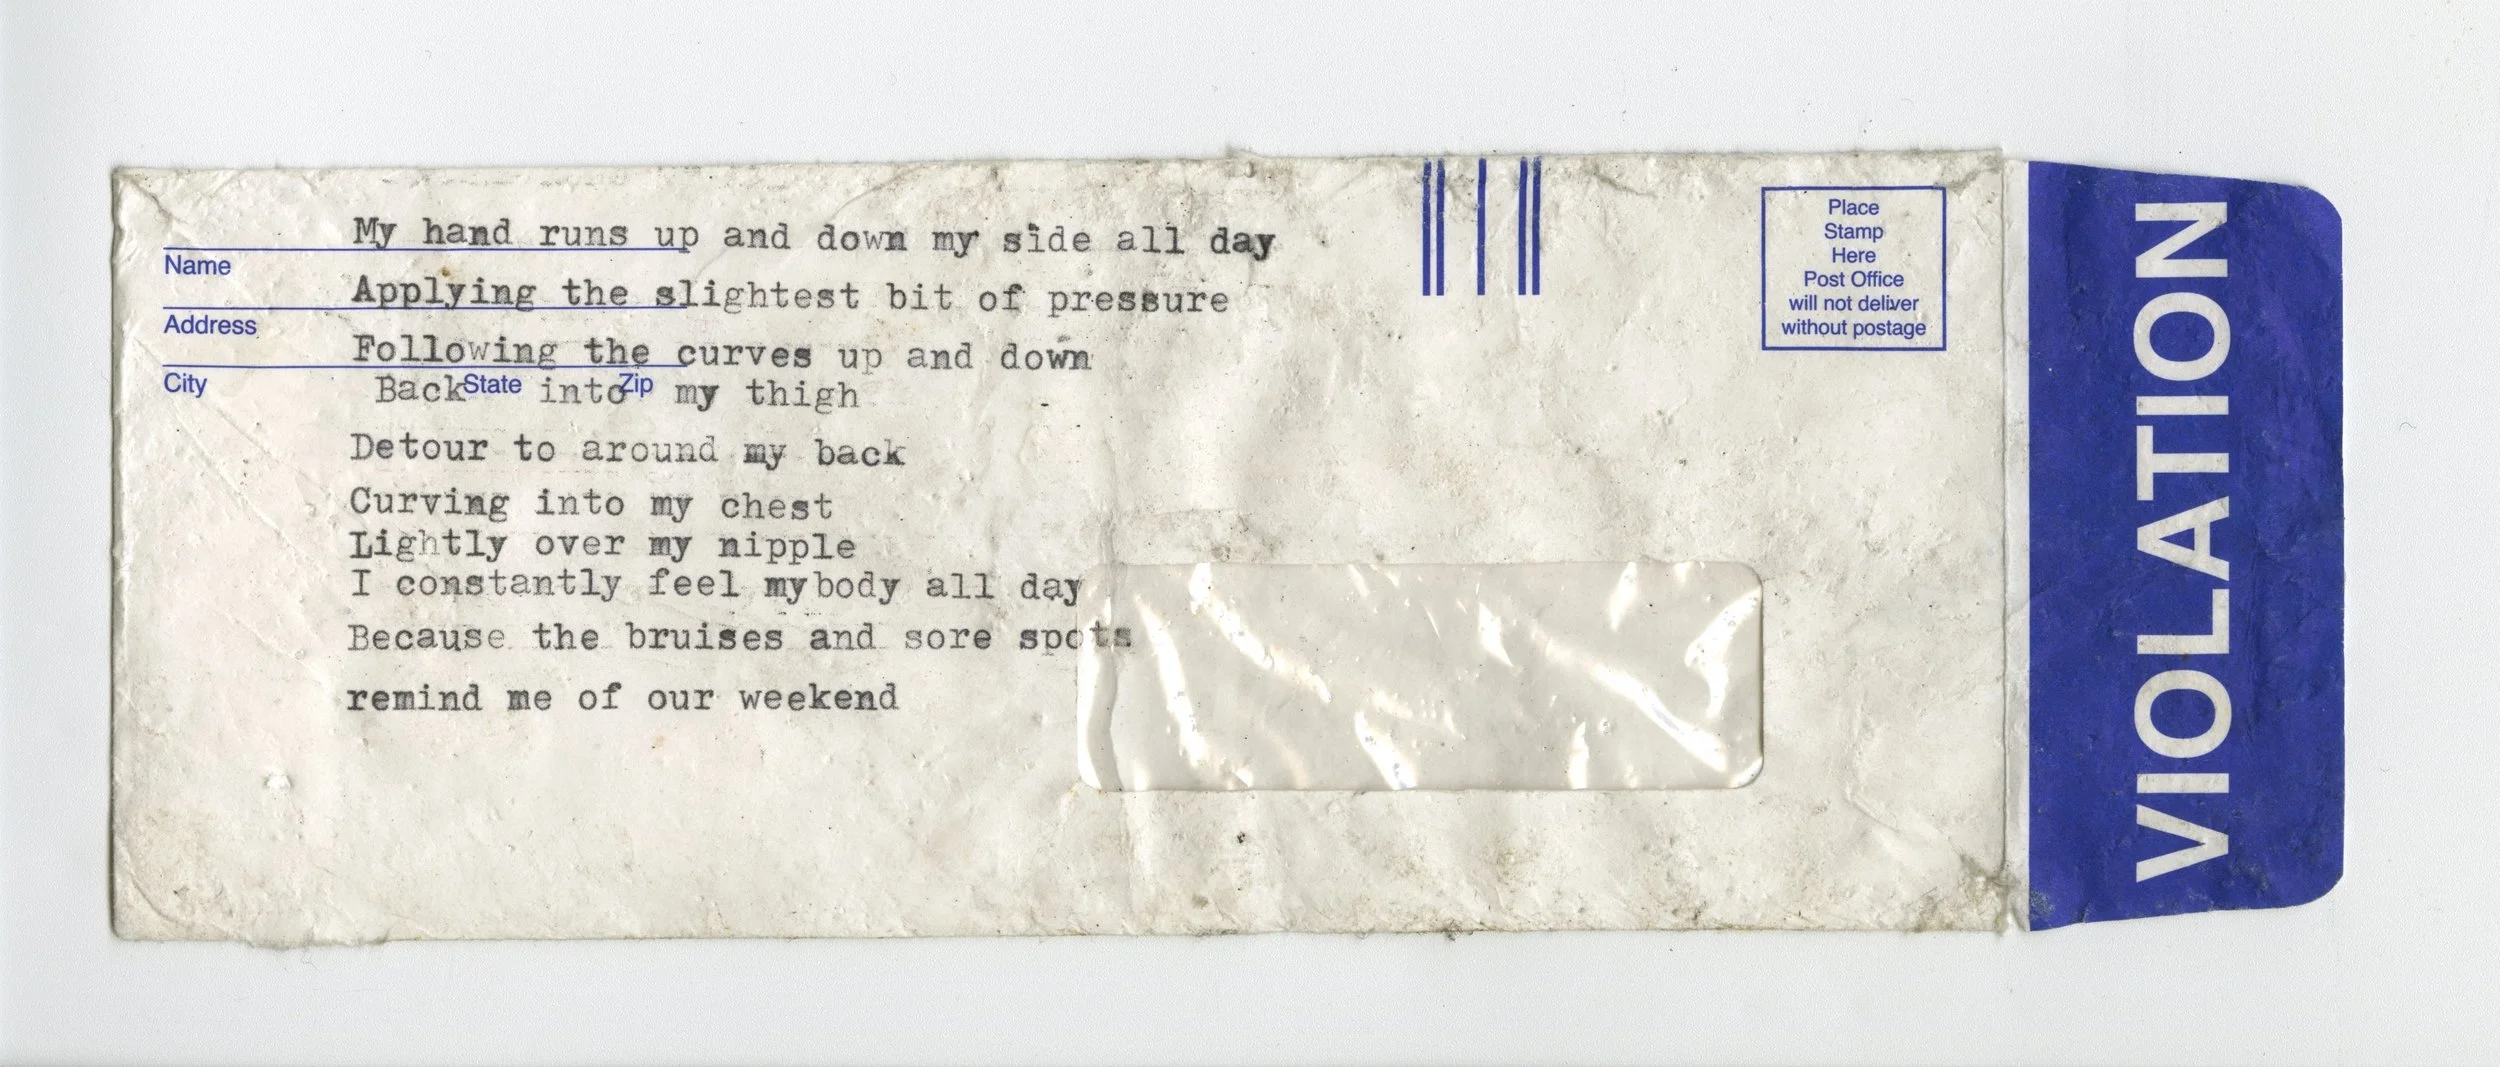 My hand runs up and down my side all day
Name
Applying the slightest bit of pressure
Address
Following the curves up and down
City State Zip
Back into my thigh
Detour to around my back
Curving into my chest
Lightly over my nipple
I constantly feel mybody all day
Because the bruises and sore spots
remind me of our weekend
Place
Stamp
Here
Post Office
will not deliver
without postage
VIOLATION